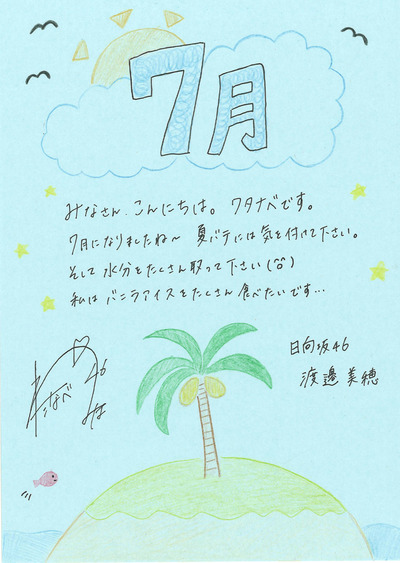 7月
みなさん、こんにちは。ワタナベです。
7月になりましたね〜 夏バテには気を付けて下さい。
そして水分をたくさん取って下さい(^o^)
私はバニラアイスをたくさん食べたいです…
日向坂46
渡邉美穂
わたなべ
みほ
46